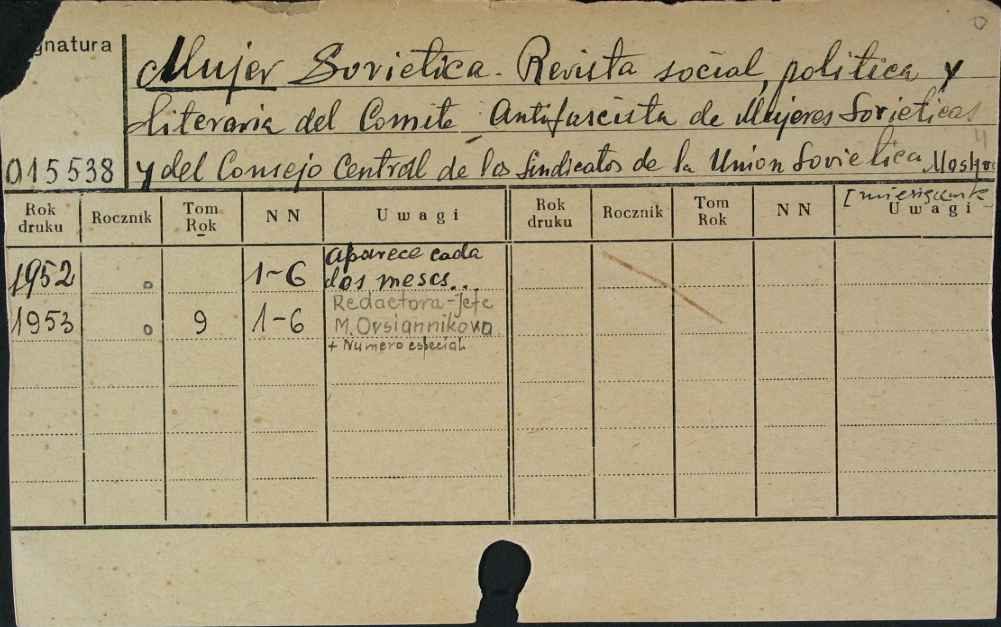 gnatura
Mujer Sovietica. Revista social, politica y
literaria del Comite Antifascista de Mujeres Sovieticas
015538 y del Consejo Central de los Sindicatos de la Union Sovietica
Rok druku Rocznik Tom Rok NN Uwagi Rok druku Rocznik Tom Rok NN Uwagi
1952 1-6 aparece cada
dos meses..
Redactora-Jefe
1953 9 1-6 M. Orsiannikova
+ Numero especial